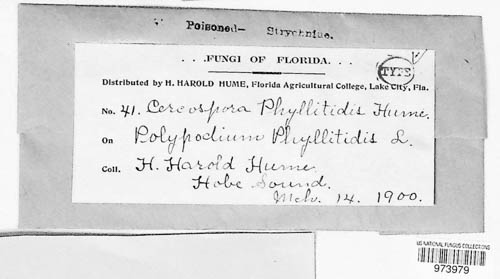 Poisoned- Strychnine.
...FUNGI OF FLORIDA...
TYPE
Distributed by H. HAROLD HUME, Florida Agricultural College, Lake City, Fla.
No. 41. Cercospora Phyllitidis Hume.
On Polypodium Phyllitidis L.
Coll. H. Harold Hume
Hobe Sound.
Mch. 14. 1900.
US NATIONAL FUNGUS COLLECTIONS
973979